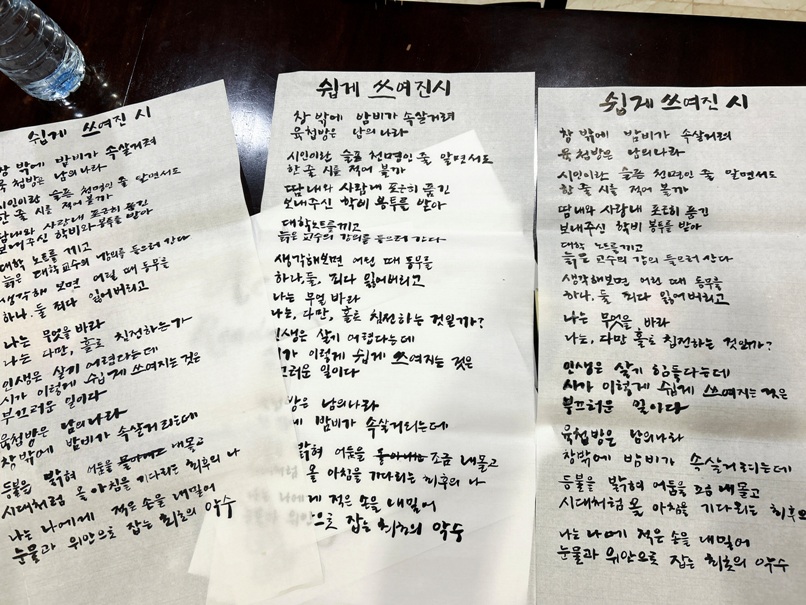 쉽게 쓰여진 시
창 밖에 밤비가 속살거려
육첩방은 남의나라
시인이란 슬픈 천명인 줄 알면서도
한 줄 시를 적어 볼까
땀내와 사랑내 포근히 품긴
보내주신 학비와 봉투를 받아
대학 노트를 끼고
늙은 대학 교수의 강의를 들으러 간다
생각해 보면 어릴 때 동무를
하나, 둘 죄다 잃어버리고
나는 무엇을 바라
나는 다만, 홀로 침전하는가
인생은 살기 어렵다는데
시가 이렇게 쉽게 쓰여지는 것은
부끄러운 일이다
육첩방은 남의나라
창밖에 밤비가 속살거리는데
등불을 밝혀 어둠을 내몰고
시대처럼 올 아침을 기다리는 최후의 나
나는 나에게 적은 손을 내밀어
눈물과 위안으로 잡는 최초의 악수
쉽게 쓰여진 시
창 밖에 밤비가 속살거려
육첩방은 남의 나라
시인이란 슬픈 천명인 줄 알면서도
한 줄 시를 적어 볼까
땀내와 사랑내 포근히 품긴
보내주신 학비 봉투를 받아
대학노트를끼고
늙은 교수의 강의를 들으러 간다
생각해보면 어린 때 동무를
하나, 둘, 죄다 잃어버리고
나는 무얼 바라
나는, 다만, 홀로 침전하는 것일까?
인생은 살기 어렵다는데
이렇게 쉽게 쓰여지는 것은
일이다
방은 남의나라
밤비가 속살거리는데
밝혀 어둠을 조금 내몰고
올 아침을 기다리는 최후의 나
적은 손을 내밀어
으로 잡는 최초의 악수
쉽게 쓰여진 시
창 밖에 밤비가 속살거려
육첩방은 남의나라
시인이란 슬픈 천명인 줄 알면서도
한 줄 시를 적어 볼까
땀내와 사랑내 포근히 품긴
보내주신 학비 봉투를 받아
대학 노트를끼고
늙은 교수의 강의 들으러 간다
생각해보면 어린 때 동무를
하나, 둘, 죄다 잃어버리고
나는 무엇을 바라
나는, 다만 홀로 침전하는 것일까?
인생은 살기 힘들다는데
시가 이렇게 쉽게 쓰여지는 것은
부끄러운 일이다
육첩방은 남의나라
창밖에 밤비가 속살거리는데
등불을 밝혀 어둠을 조금 내몰고
시대처럼 올 아침을 기다리는 최후의
나는 나에게 적은 손을 내밀어
눈물과 위안으로 잡는 최초의 악수